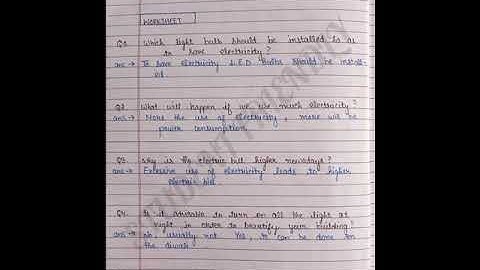 WORKSHEET
Q1. Which light bulb should be installed so as
to save electricity?
ans → To save electricity L.E.D Bulbs should be install-
ed.
Q2. What will happen if we use much electricity?
ans → More the use of electricity, more will be
power consumption.
Q3. Why is the electric bill higher nowadays?
ans → Excessive use of electricity leads to higher
electric bill.
Q4. Is it advisable to turn on all the light at
night in order to beautify your building?
ans → No, usually not. Yes, it can be done on
the diwali
STUDENT FRIENDLY